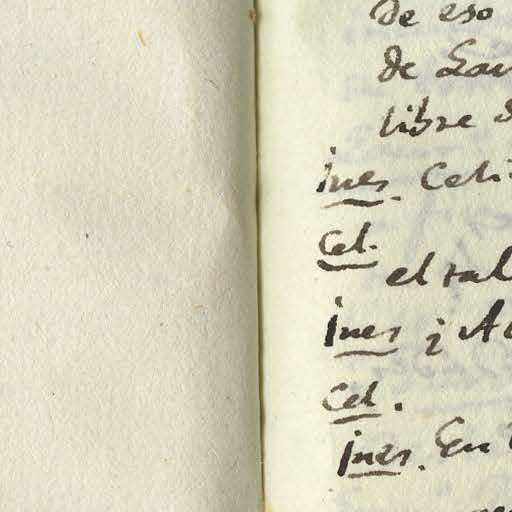 de eso
de
libre
Ines. Celi
Cel.
el tal
Ines ¿ A
Cel.
Ines. En